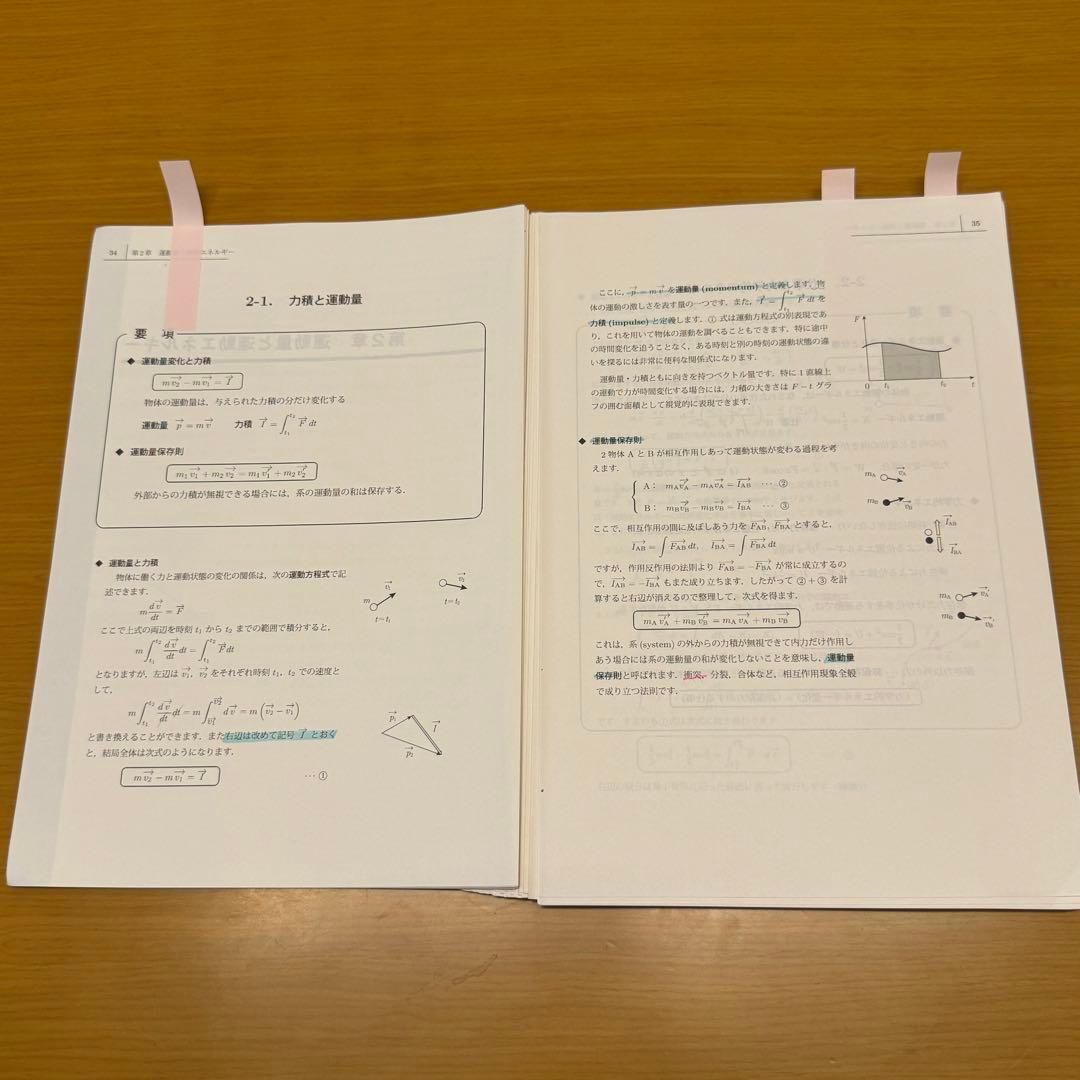 34 第2章 運動 エネルギー
2-1. 力積と運動量
要 項
◆ 運動量変化と力積
m\vec{v_2} − m\vec{v_1} = \vec{I}
物体の運動量は、与えられた力積の分だけ変化する
運動量 \vec{p} = m\vec{v} 力積 \vec{I} = ∫_{t_1}^{t_2} \vec{F} dt
◆ 運動量保存則
m_1\vec{v_1} + m_2\vec{v_2} = m_1\vec{v_1'} + m_2\vec{v_2'}
外部からの力積が無視できる場合には、系の運動量の和は保存する.
◆ 運動量と力積
物体に働く力と運動状態の変化の関係は、次の運動方程式で記
述できます.
m d\vec{v}/dt = \vec{F}
ここで上式の両辺を時刻 t_1 から t_2 までの範囲で積分すると,
m ∫_{t_1}^{t_2} d\vec{v}/dt dt = ∫_{t_1}^{t_2} \vec{F} dt
となりますが、左辺は \vec{v_1}, \vec{v_2} をそれぞれ時刻 t_1, t_2 での速度と
して,
m ∫_{t_1}^{t_2} d\vec{v}/dt dt = m ∫_{\vec{v_1}}^{\vec{v_2}} d\vec{v} = m (\vec{v_2} − \vec{v_1})
と書き換えることができます. また右辺は改めて記号 \vec{I} とおく
と、結局全体は次式のようになります.
m\vec{v_2} − m\vec{v_1} = \vec{I} ··· ①
m \vec{v_1} t=t_1
\vec{v_2} t=t_2
\vec{p_1} \vec{I} \vec{p_2}
35
ここに, \vec{p} = m\vec{v} を運動量 (momentum) と定義します. 物
体の運動の激しさを表す量の一つです. また, \vec{I} = ∫_{t_1}^{t_2} \vec{F} dt を
力積 (impulse) と定義します. ① 式は運動方程式の別表現であ
り、これを用いて物体の運動を調べることもできます. 特に途中
の時間変化を追うことなく、ある時刻と別の時刻の運動状態の違
いを探るには非常に便利な関係式になります.
運動量・力積ともに向きを持つベクトル量です. 特に 1 直線上
の運動で力が時間変化する場合には、力積の大きさは F−t グラ
フの囲む面積として視覚的に表現できます.
F
0 t_1 t_2 t
◆ 運動量保存則
2 物体 A と B が相互作用しあって運動状態が変わる過程を考
えます.
A: m_A\vec{v_A'} − m_A\vec{v_A} = \vec{I_{AB}} ··· ②
B: m_B\vec{v_B'} − m_B\vec{v_B} = \vec{I_{BA}} ··· ③
ここで、相互作用の間に及ぼしあう力を \vec{F_{AB}}, \vec{F_{BA}} とすると,
\vec{I_{AB}} = ∫ \vec{F_{AB}} dt, \vec{I_{BA}} = ∫ \vec{F_{BA}} dt
ですが、作用反作用の法則より \vec{F_{AB}} = −\vec{F_{BA}} が常に成立するの
で, \vec{I_{AB}} = −\vec{I_{BA}} もまた成り立ちます. したがって ②+③ を計
算すると右辺が消えるので整理して、次式を得ます.
m_A\vec{v_A} + m_B\vec{v_B} = m_A\vec{v_A'} + m_B\vec{v_B'}
これは、系 (system) の外からの力積が無視できて内力だけ作用し
あう場合には系の運動量の和が変化しないことを意味し、運動量
保存則と呼ばれます. 衝突, 分裂, 合体など、相互作用現象全般
で成り立つ法則です.
m_A \vec{v_A}
m_B \vec{v_B}
\vec{I_{AB}}
\vec{I_{BA}}
m_A \vec{v_A'}
m_B \vec{v_B'}